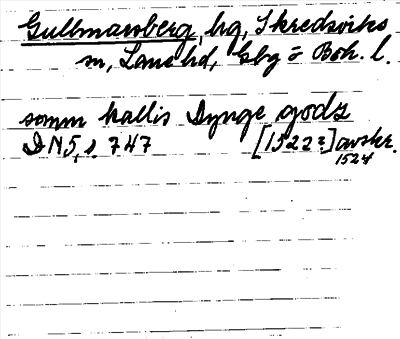 Gullmarsberg, hg, Skredsviks
sn, Lane hd, Gbg o Boh. l.
somm kallis Dynge godz
DN5, s. 747 [1522?] avskr.
1524